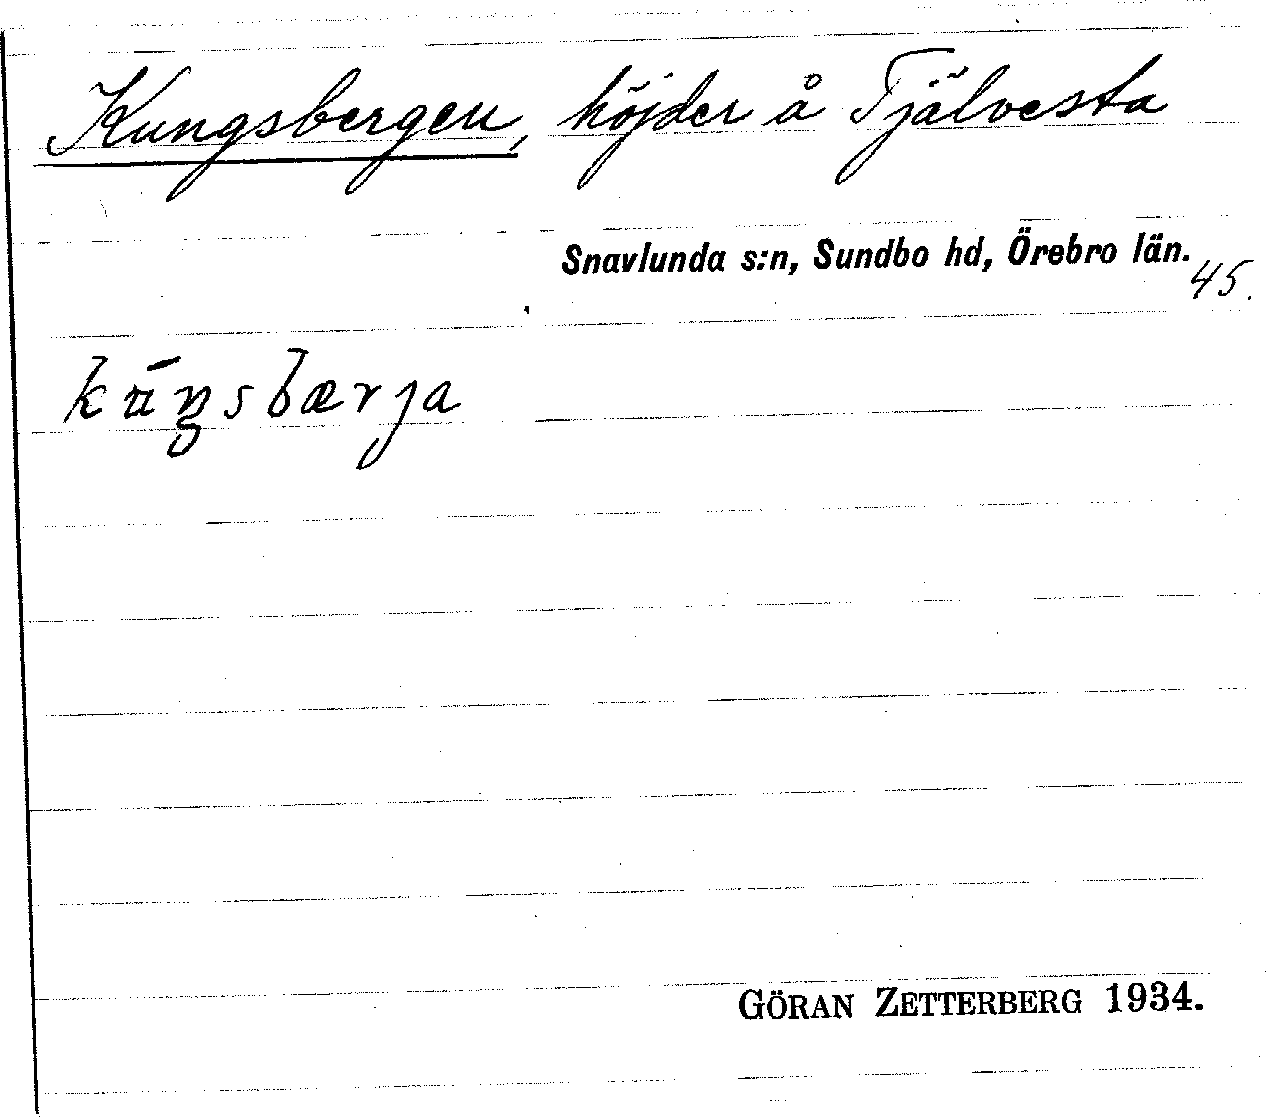 Kungsbergen, höjder å Tjälvesta
Snavlunda s:n, Sundbo hd, Örebro län.
45.
kūŋsbærja
GÖRAN ZETTERBERG 1934.